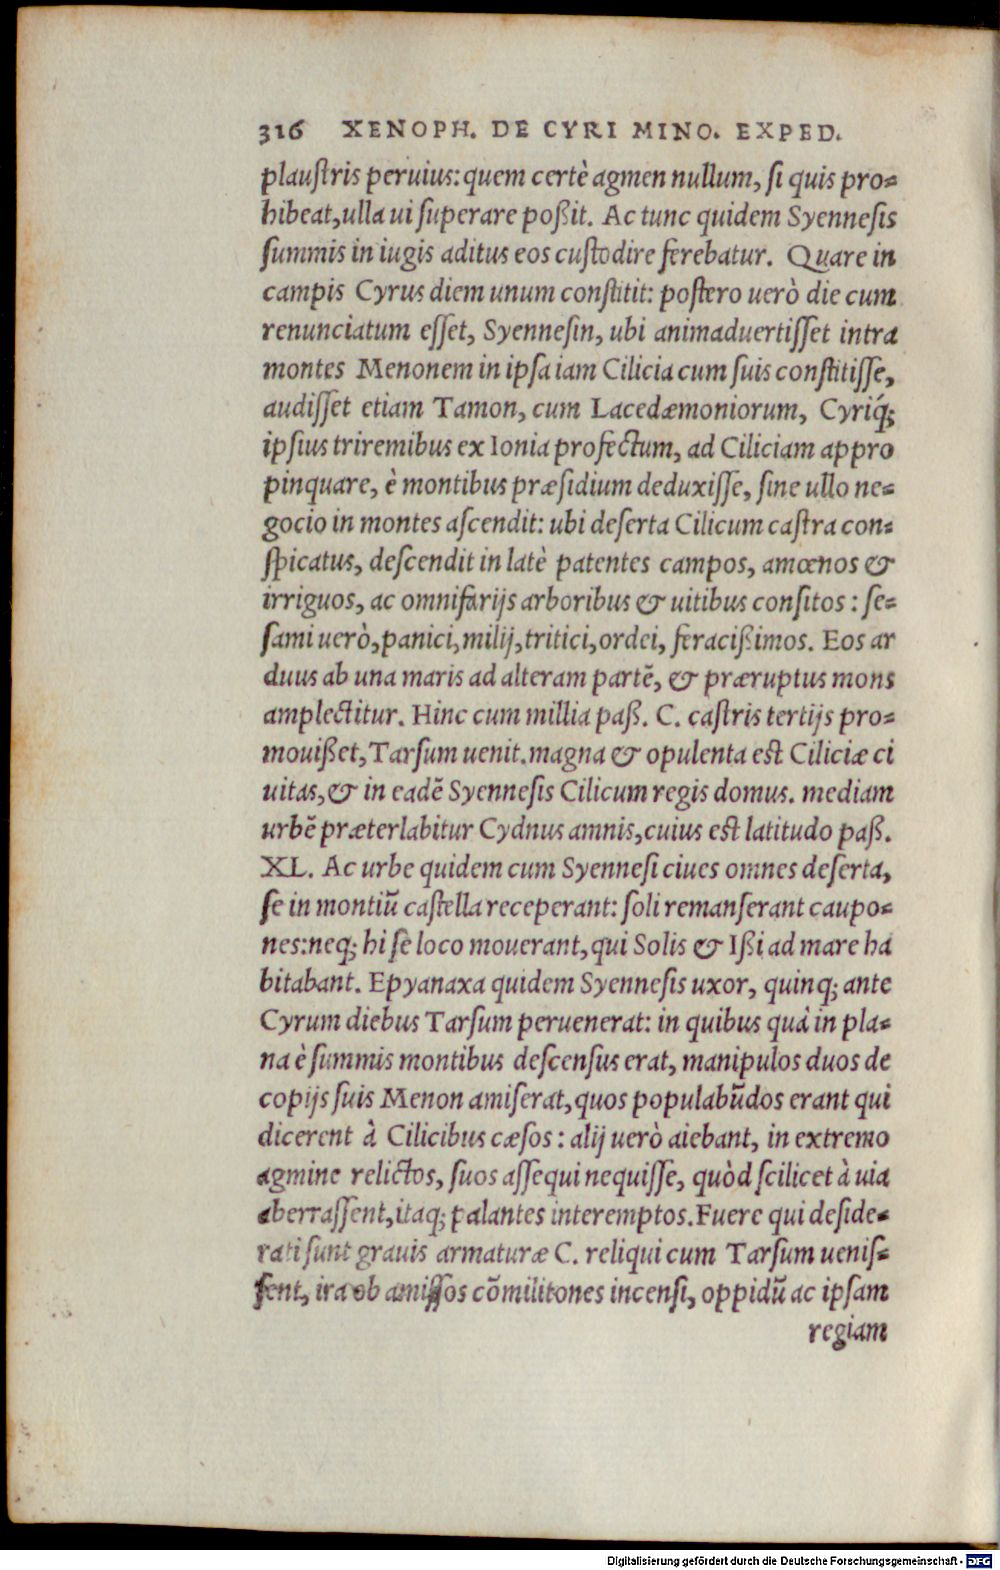 316 XENOPH. DE CYRI MINO. EXPED.
plauſtris peruius: quem certè agmen nullum, ſi quis pro-
hibeat, ulla ui ſuperare poßit. Ac tunc quidem Syenneſis
ſummis in iugis aditus eos cuſtodire ferebatur. Quare in
campis Cyrus diem unum conſtitit: poſtero uerò die cum
renunciatum eſſet, Syenneſin, ubi animaduertiſſet intra
montes Menonem in ipſa iam Cilicia cum ſuis conſtitiſſe,
audiſſet etiam Tamon, cum Lacedæmoniorum, Cyriq́;
ipſius triremibus ex Ionia profectum, ad Ciliciam appro
pinquare, è montibus præſidium deduxiſſe, ſine ullo ne-
gocio in montes aſcendit: ubi deſerta Cilicum caſtra con-
ſpicatus, deſcendit in latè patentes campos, amœnos &
irriguos, ac omnifarijs arboribus & uitibus conſitos: ſe-
ſami uerò, panici, milij, tritici, ordei, feracißimos. Eos ar
duus ab una maris ad alteram partē, & præruptus mons
amplectitur. Hinc cum millia paß. C. caſtris tertijs pro-
mouißet, Tarſum uenit. magna & opulenta eſt Ciliciæ ci
uitas, & in eadē Syenneſis Cilicum regis domus. mediam
urbē præterlabitur Cydnus amnis, cuius eſt latitudo paß.
XL. Ac urbe quidem cum Syenneſi ciues omnes deſerta,
ſe in montiū caſtella receperant: ſoli remanſerant caupo-
nes: neq; hi ſe loco mouerant, qui Solis & Ißi ad mare ha
bitabant. Epyanaxa quidem Syenneſis uxor, quinq; ante
Cyrum diebus Tarſum peruenerat: in quibus quà in pla-
na è ſummis montibus deſcenſus erat, manipulos duos de
copijs ſuis Menon amiſerat, quos populabūdos erant qui
dicerent à Cilicibus cæſos: alij uerò aiebant, in extremo
agmine relictos, ſuos aſſequi nequiſſe, quòd ſcilicet à uia
aberraſſent, itaq; palantes interemptos. Fuere qui deſide-
rati ſunt grauis armaturæ C. reliqui cum Tarſum ueniſ-
ſent, ira ob amiſſos cōmilitones incenſi, oppidū ac ipſam
regiam
Digitalisierung gefördert durch die Deutsche Forschungsgemeinschaft - DFG